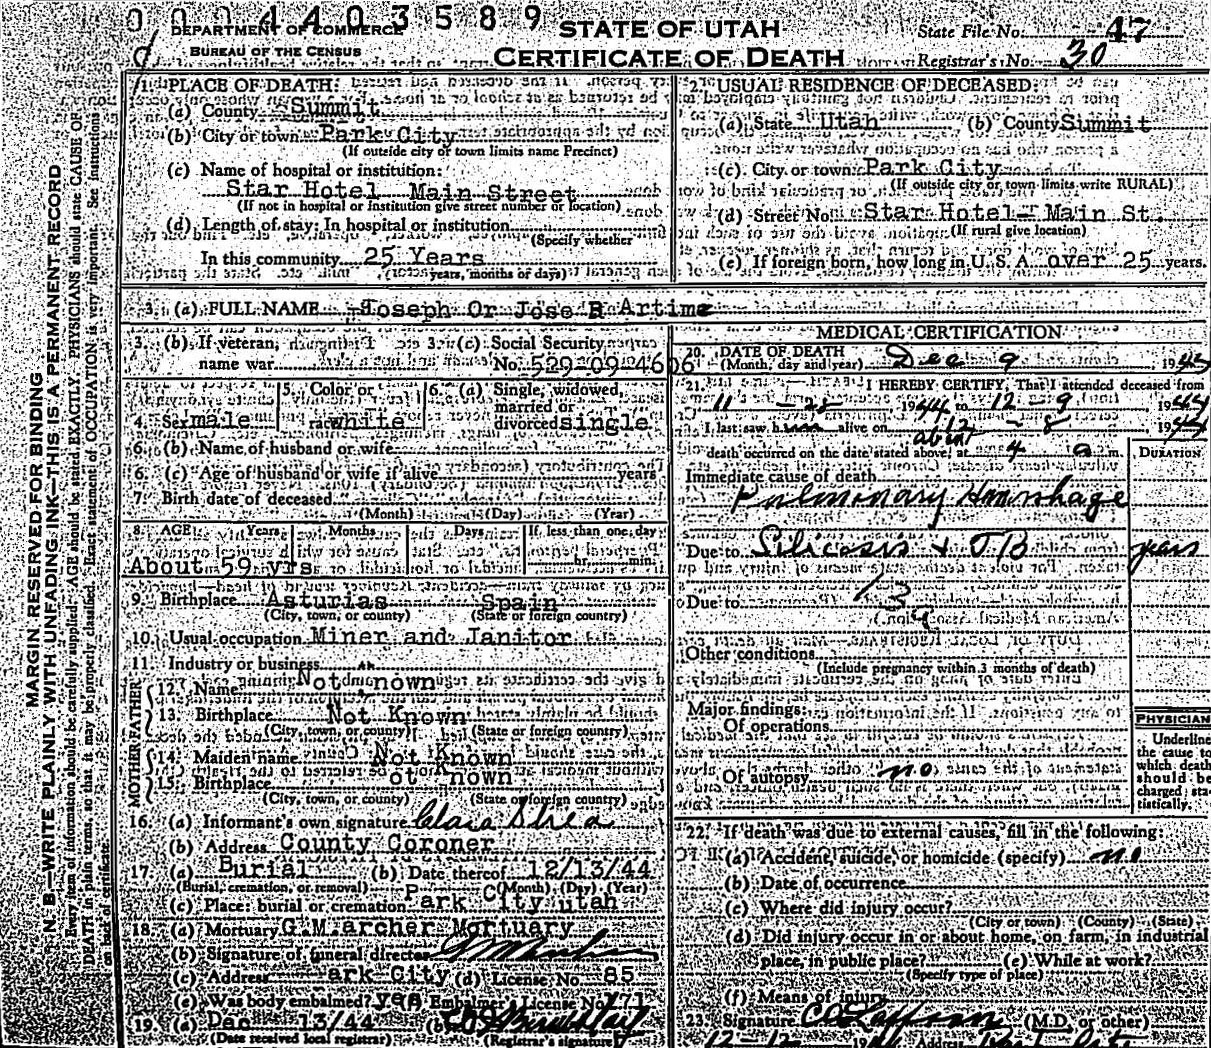 0004403589
DEPARTMENT OF COMMERCE
BUREAU OF THE CENSUS
STATE OF UTAH
CERTIFICATE OF DEATH
State File No. 47
Registrar's No. 30
MARGIN RESERVED FOR BINDING
N. B.—WRITE PLAINLY WITH UNFADING INK—THIS IS A PERMANENT RECORD
Every item of information should be carefully supplied. AGE should be stated EXACTLY. PHYSICIANS should state CAUSE OF
DEATH in plain terms, so that it may be properly classified. Exact statement of OCCUPATION is very important. See instructions
on back of certificate.
1. PLACE OF DEATH:
(a) County Summit
(b) City or town Park City
(If outside city or town limits name Precinct)
(c) Name of hospital or institution:
Star Hotel Main Street
(If not in hospital or institution give street number or location)
(d) Length of stay: In hospital or institution
(Specify whether
In this community 25 Years
years, months or days)
2. USUAL RESIDENCE OF DECEASED:
(a) State Utah (b) County Summit
(c) City or town Park City
(If outside city or town limits write RURAL)
(d) Street No. Star Hotel- Main St.
(If rural give location)
(e) If foreign born, how long in U. S. A. over 25 years.
3. (a) FULL NAME Joseph Or Jose B Artime
3. (b) If veteran, name war
3. (c) Social Security No. 529-09-4606
4. Sex male
5. Color or race white
6. (a) Single, widowed, married or divorced single
6. (b) Name of husband or wife
6. (c) Age of husband or wife if alive years
7. Birth date of deceased
(Month) (Day) (Year)
8. AGE Years Months Days If less than one day
About 59 yrs hr. min.
9. Birthplace Asturias Spain
(City, town, or county) (State or foreign country)
10. Usual occupation Miner and Janitor
11. Industry or business
FATHER
12. Name Not known
13. Birthplace Not Known
(City, town, or county) (State or foreign country)
MOTHER
14. Maiden name Not Known
15. Birthplace ot Known
(City, town, or county) (State or foreign country)
16. (a) Informant's own signature Clara Shea
(b) Address County Coroner
17. (a) Burial (b) Date thereof 12/13/44
(Burial, cremation, or removal) (Month) (Day) (Year)
(c) Place: burial or cremation Park City utah
18. (a) Mortuary G.M.archer Mortuary
(b) Signature of funeral director
(c) Address ark City (d) License No. 85
(e) Was body embalmed? yes Embalmer's License No. 171
19. (a) Dec 13/44 (b)
(Date received local registrar) (Registrar's signature)
MEDICAL CERTIFICATION
20. DATE OF DEATH
(Month, day and year) Dec 9 1944
21. I HEREBY CERTIFY, That I attended deceased from
11 - 28 1944 to 12 - 9 1944
I last saw him alive on 12 - 8 1944
death occurred on the date stated above, at about 4 a m.
DURATION
Immediate cause of death
Pulmonary Hemorrhage
Due to Silicosis & TB years
Due to
Other conditions
(Include pregnancy within 3 months of death)
Major findings:
Of operations
Of autopsy no
PHYSICIAN
Underline
the cause to
which death
should be
charged sta-
tistically.
22. If death was due to external causes, fill in the following:
(a) Accident, suicide, or homicide (specify) no
(b) Date of occurrence
(c) Where did injury occur?
(City or town) (County) (State)
(d) Did injury occur in or about home, on farm, in industrial
place, in public place? (e) While at work?
(Specify type of place)
(f) Means of injury
23. Signature (M.D. or other)
12-12 1944 Address Park City